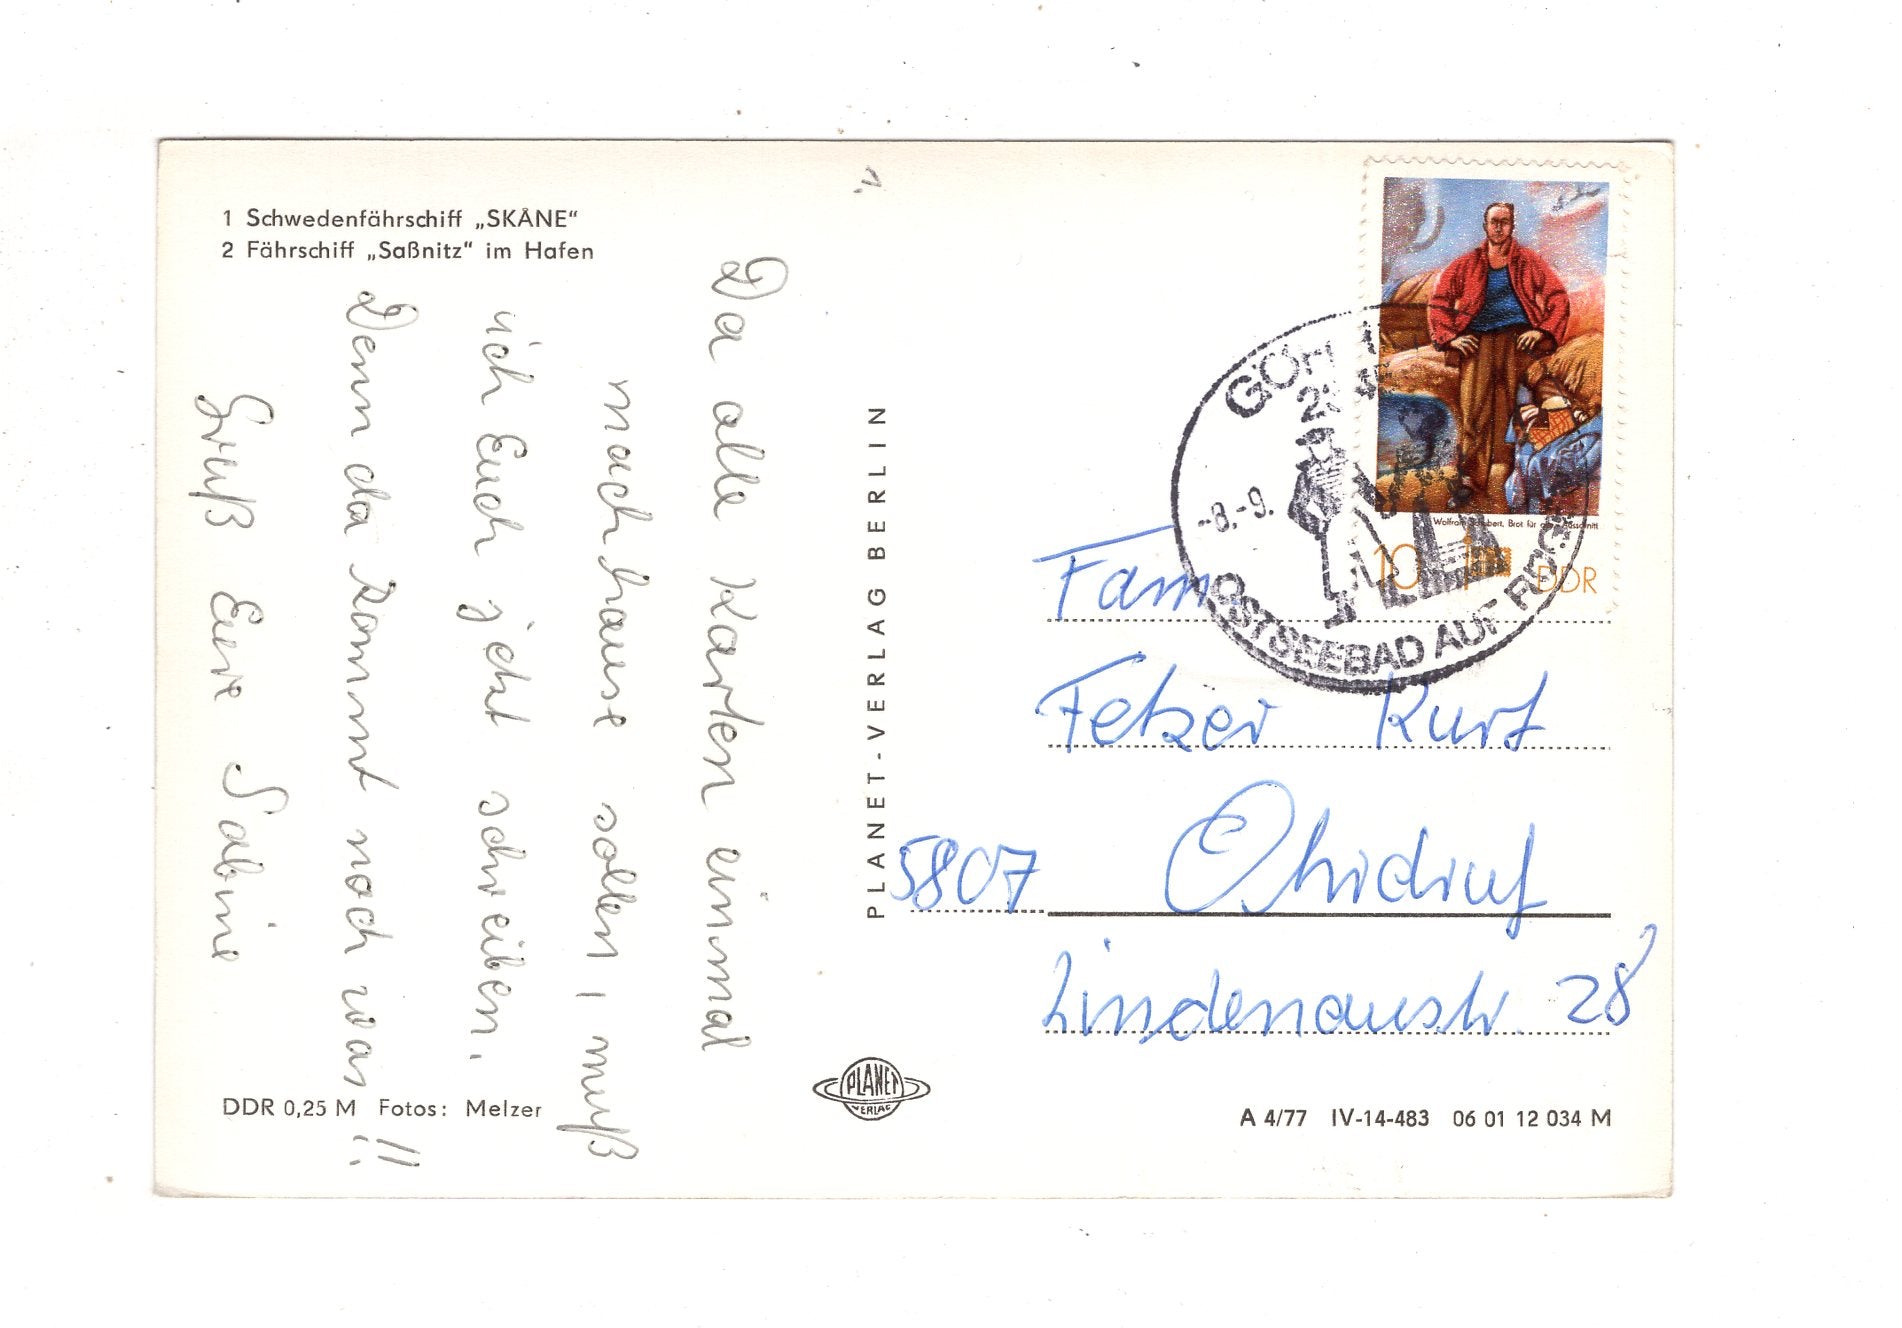 1 Schwedenfährschiff „SKÅNE“
2 Fährschiff „Saßnitz“ im Hafen
1.
Da alle Karten einmal
nach hause sollen, muß
ich Euch jetzt schreiben,
Denn da kommt noch was!!
Gruß Eure Sabine
DDR 0,25 M Fotos: Melzer
PLANET-VERLAG BERLIN
PLANET
VERLAG
-8.-9.
OSTSEEBAD AUF
Wolfram Schubert, Brot für alle Ausschnitt
10 DDR
Fam.
Fetzer Kurt
5807 Ohrdruf
Lindenaustr. 28
A 4/77 IV-14-483 06 01 12 034 M